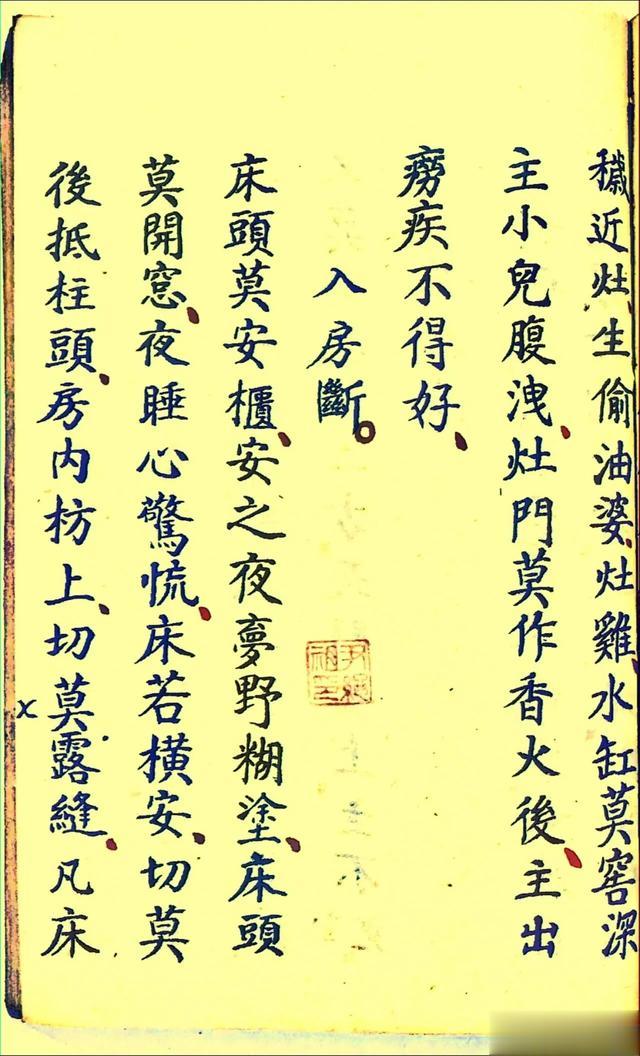 穢近灶生偷油婆灶雞水缸莫窖深
主小兒腹洩灶門莫作香火後主出
癆疾不得好
入房斷
床頭莫安櫃安之夜夢野糊塗床頭
莫開窓夜睡心驚慌床若橫安切莫
後抵柱頭房內枋上切莫露縫凡床